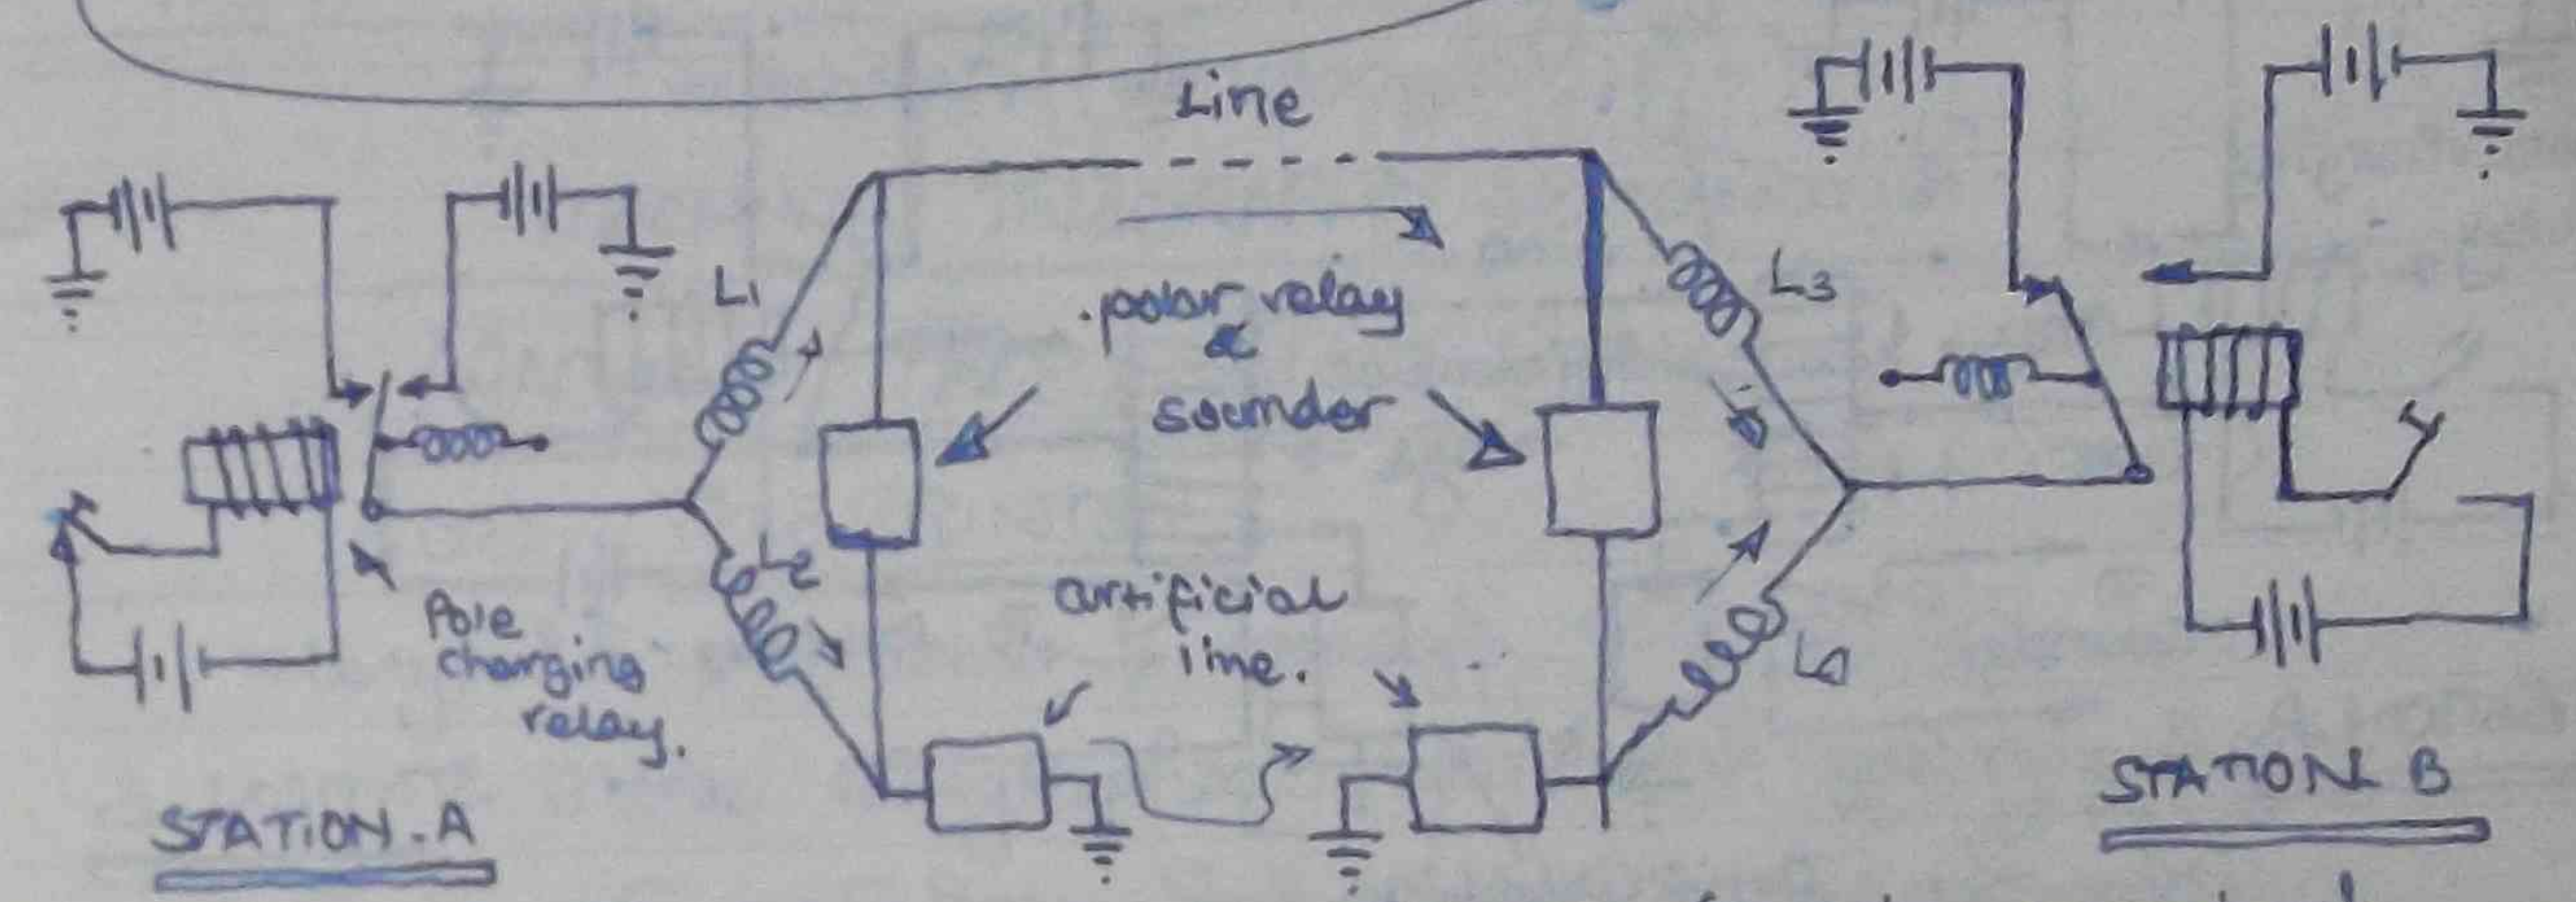 Line
L1
L3
.polar relay
&
sounder
L2
Pole
charging
relay.
artificial
line.
STATION-A
STATION B